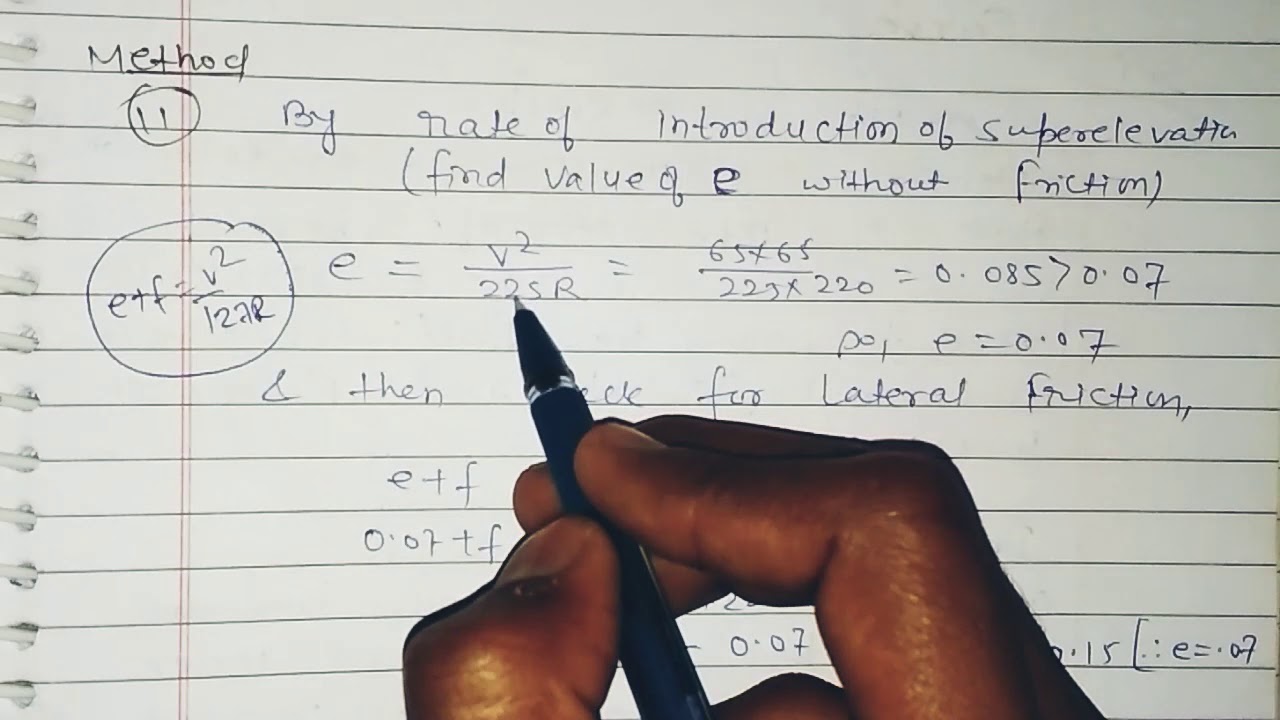 Method
11 By rate of introduction of superelevatin
(find value of e without friction)
e+f = v²/127R
e = v²/225R = 65×65/225×220 = 0.085 > 0.07
so, e = 0.07
& then for Lateral friction,
e+f
0.07+f
0.07 .15 [∵ e=.07